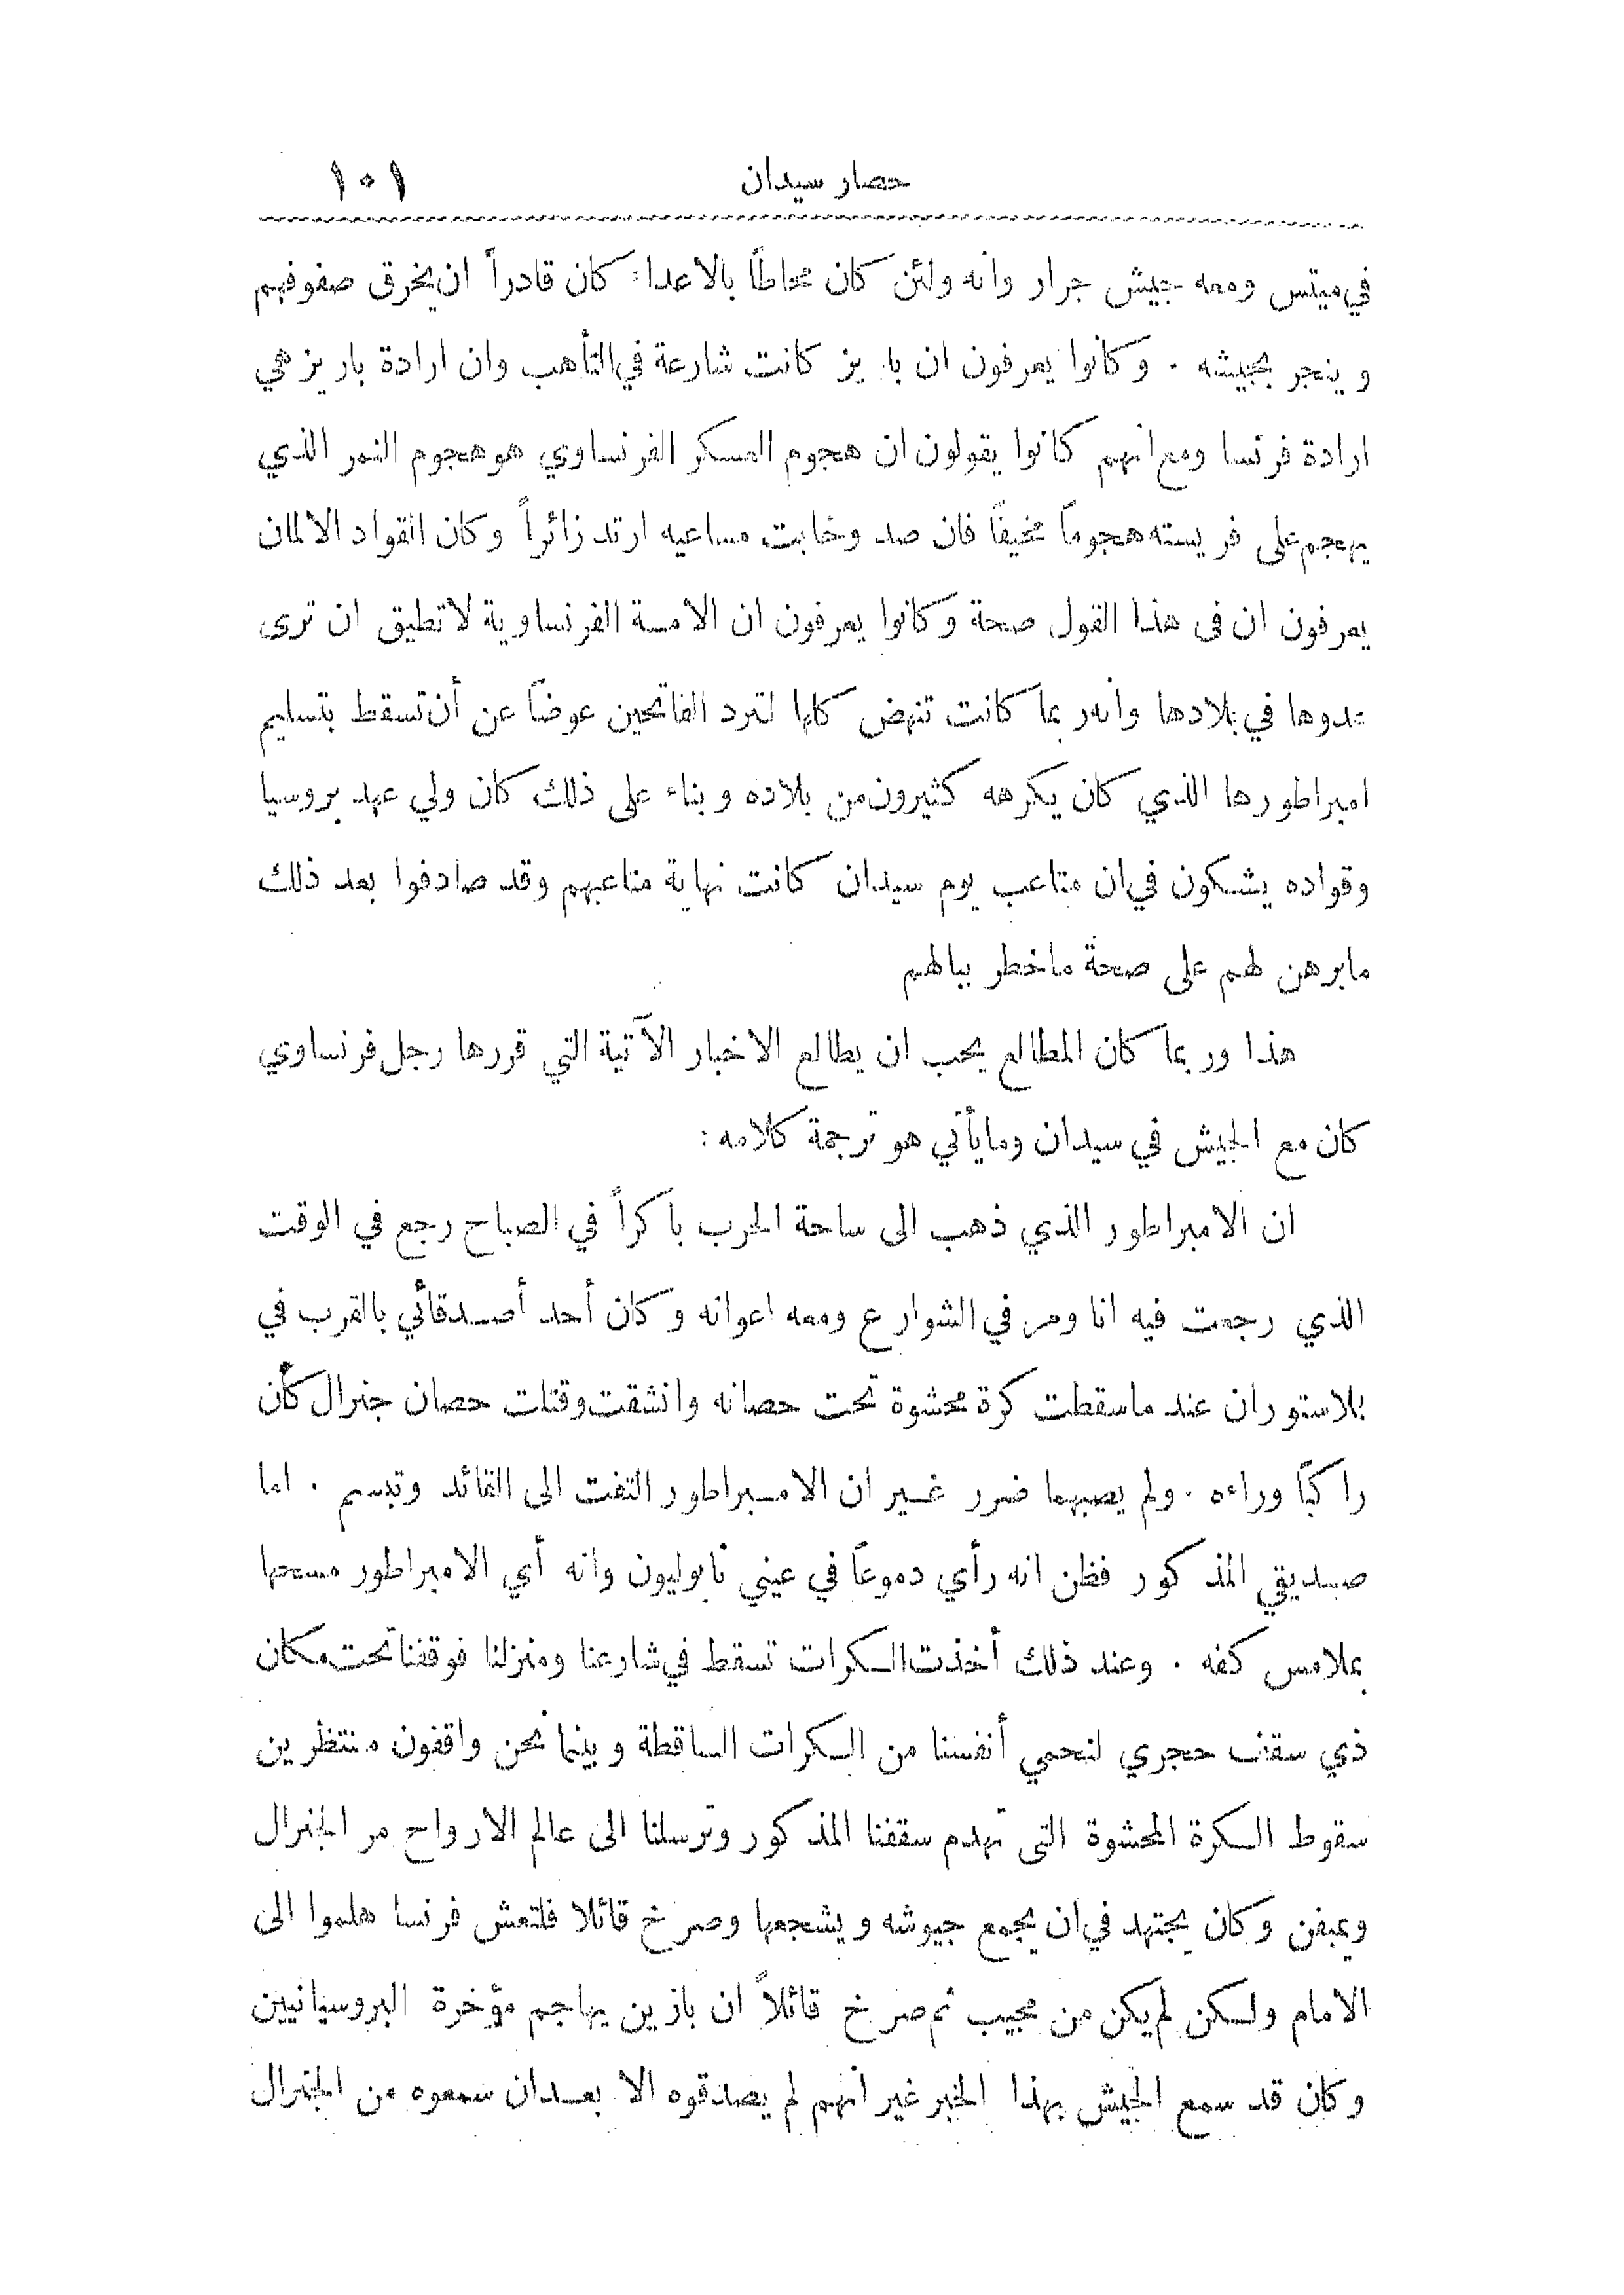 حصار سيدان ١٠١
في ميتس ومعه جيش جرار وانه ولئن كان محاطاً بالاعداء كان قادراً ان يخرق صفوفهم
وينجر بجيشه . وكانوا يعرفون ان باريز كانت شارعة في التأهب وان ارادة باريز هي
ارادة فرنسا ومع انهم كانوا يقولون ان هجوم العسكر الفرنساوي هو هجوم النمر الذي
يهجم على فريسته هجوماً مخيفاً فان صد وخابت مساعيه ارتد زائراً وكان القواد الالمان
يعرفون ان فى هذا القول صحة وكانوا يعرفون ان الامة الفرنساوية لا تطيق ان ترى
عدوها في بلادها وانه ربما كانت تنهض كلها لترد الفاتحين عوضاً عن أن تسقط بتسليم
امبراطورها الذي كان يكرهه كثيرون من بلاده وبناء على ذلك كان ولي عهد بروسيا
وقواده يشكون في ان متاعب يوم سيدان كانت نهاية متاعبهم وقد صادفوا بعد ذلك
ما برهن لهم على صحة ما خطر ببالهم
هذا وربما كان المطالع يحب ان يطالع الاخبار الآتية التي قررها رجل فرنساوي
كان مع الجيش في سيدان وما يأتي هو ترجمة كلامه :
ان الامبراطور الذي ذهب الى ساحة الحرب باكراً في الصباح رجع في الوقت
الذي رجعت فيه انا ومر في الشوارع ومعه اعوانه وكان أحد أصدقائي بالقرب في
بلاستوران عند ما سقطت كرة محشوة تحت حصانه وانشقت وقتلت حصان جنرال كأن
راكباً وراءه . ولم يصبهما ضرر غير ان الامبراطور التفت الى القائد وتبسم . اما
صديقي المذكور فظن انه رأي دموعاً في عيني نابوليون وانه أي الامبراطور مسحها
بملامس كفه . وعند ذلك أخذت الكرات تسقط في شارعنا ومنزلنا فوقفنا تحت مكان
ذي سقف حجري لنحمي أنفسنا من الكرات الساقطة وبينما نحن واقفون منتظرين
سقوط الكرة المحشوة التى تهدم سقفنا المذكور وترسلنا الى عالم الارواح مر الجنرال
ويمبفن وكان يجتهد في ان يجمع جيوشه ويشجعها وصرخ قائلا فلتعش فرنسا هلموا الى
الامام ولكن لم يكن من مجيب ثم صرخ قائلاً ان بازين يهاجم مؤخرة البروسيانيين
وكان قد سمع الجيش بهذا الخبر غير انهم لم يصدقوه الا بعد ان سمعوه من الجنرال